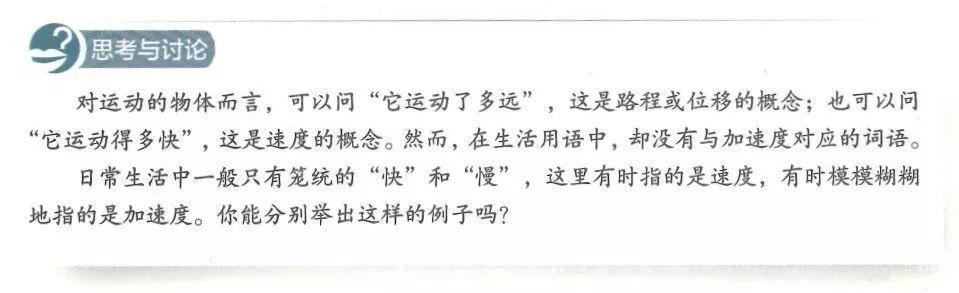 思考与讨论
对运动的物体而言，可以问“它运动了多远”，这是路程或位移的概念；也可以问
“它运动得多快”，这是速度的概念。然而，在生活用语中，却没有与加速度对应的词语。
日常生活中一般只有笼统的“快”和“慢”，这里有时指的是速度，有时模模糊糊
地指的是加速度。你能分别举出这样的例子吗？